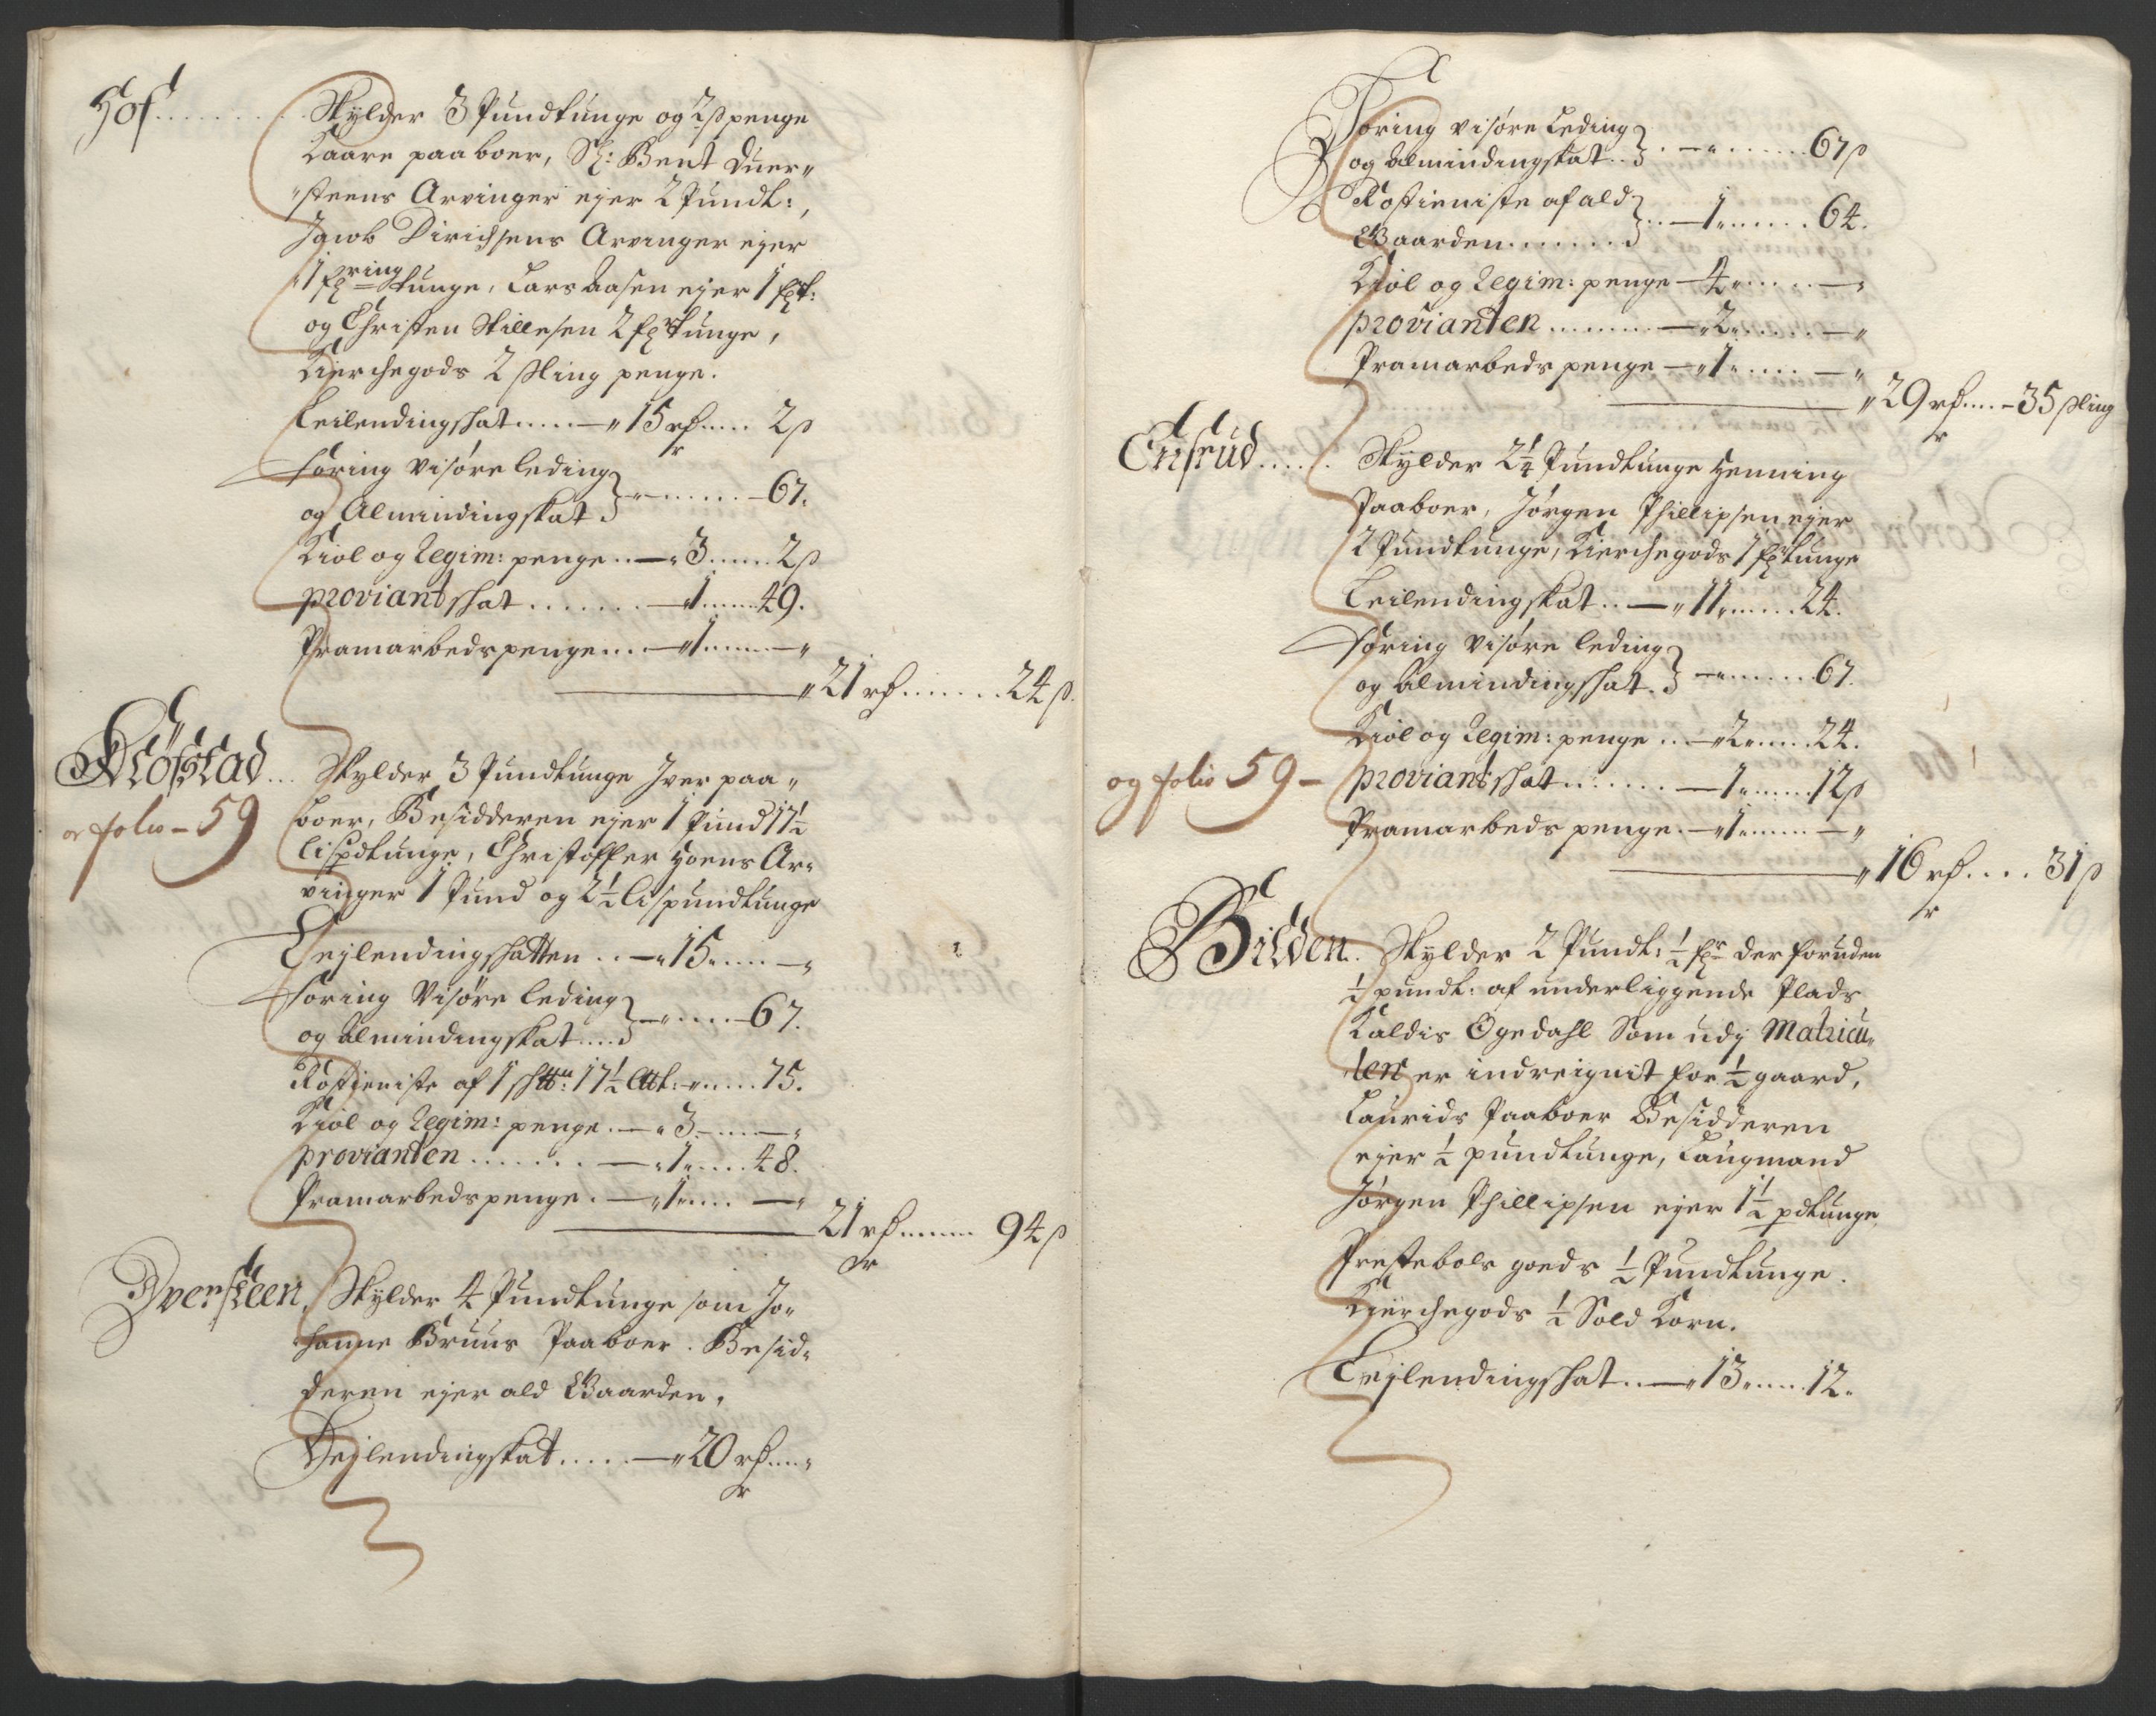 Hof . . . . . Skylder 3 Pundtunge og 2 ß penge
Kaare paaboer, Sl: Bent Duer„
„steens Arvinger ejer 2 Pundt:,
Jacob Dirichsens Arvinger ejer
1 fgring tunge, Lars Aasen ejer 1 fgrt:
og Christen Nillesen 2 fgrtunge,
Kierchegods 2 skling penge.
Leilendingskat . . . . . — „15 rd . . . . 2 ß
Foring Visøre leding
og Almindingskat } — „ . . . . . 67.
Kiol og Regim: penge . . — „3 . . . . 2 ß
proviant skat . . . . . . — 1 . . . . 49.
Pramarbedspenge . . . — „1 . . . . — „
„21 rd . . . . . . 24 ß.
Kløfstad . . . Skylder 3 Pundtunge Iver paa„
folio - 59
boer, Besidderen ejer 1 Pund 17½
lispdtunge, Christoffer Hoens Ar„
vinger 1 Pund og 2½ lispundtunge
Lejlendingskatten . . — „15 . . . . — „
Foring Visøre leding
og Almindingskat . . . } — „ . . . . 67.
Rostieniste af 1 sk℔: 17½ L℔t: — „ . . . . 75.
Kiol og Regim: penge . — „3 . . . . — „
provianten . . . . . . . — „1 . . . . 48.
Pramarbedspenge . — „1 . . . . — „
21 rd . . . . . 94 ß
Iversteen. Skylder 4 Pundtunge som Jo„
hanne Bruns Paaboer. Besid„
deren ejer ald Gaarden,
Lejlendingskat . . . . . — „20 rd . . . „
Foring Visøre Leding
og Almindingskat . . } . — „ . . . . . 67 ß
Rostieniste af ald
Gaarden . . . . . . . . } . . — 1 „ . . . . . 64.
Kiol og Regim: penge — 4 „ . . . . — „
provianten . . . . . . . . — „2 . . . . . — „
Pramarbeds penge — „1 . . . . . — „
„29 rd . . . - 35 skling
Ensrud . . . . . Skylder 2¼ Pundtunge Henning
Paaboer, Jørgen Phillipsen ejer
2 Pundtunge, Kierchegods 1 fgrtunge
Leilendingskat . . — „11 „ . . . . 24.
Foring Visøre leding
og Almindingskat . } — „ . . . . . 67.
Kiol og Regim: penge . . — „2 . . . . 24.
og folio 59 - proviant skat . . . . . . — 1 „ . . . . 12 ß
Pramarbeds penge . — „1 . . . . . — „
„16 rd . . . . 31 ß
Bilden. Skylder 2 Pundt: ½ fgr der foruden
½ pundt: af underliggende Plads
Kaldis Øgedahl Som udj Matricu„
len er indreignit for ½ gaard,
Laurids Paaboer Besidderen
ejer ½ pundtunge, Laugmand
Jørgen Phillipsen ejer 1½ pdtunge,
Prestebols gods ½ Pundtunge.
Kierchegods ½ Sold Korn.
Lejlendingskat . . — „13 „ . . . . 12.